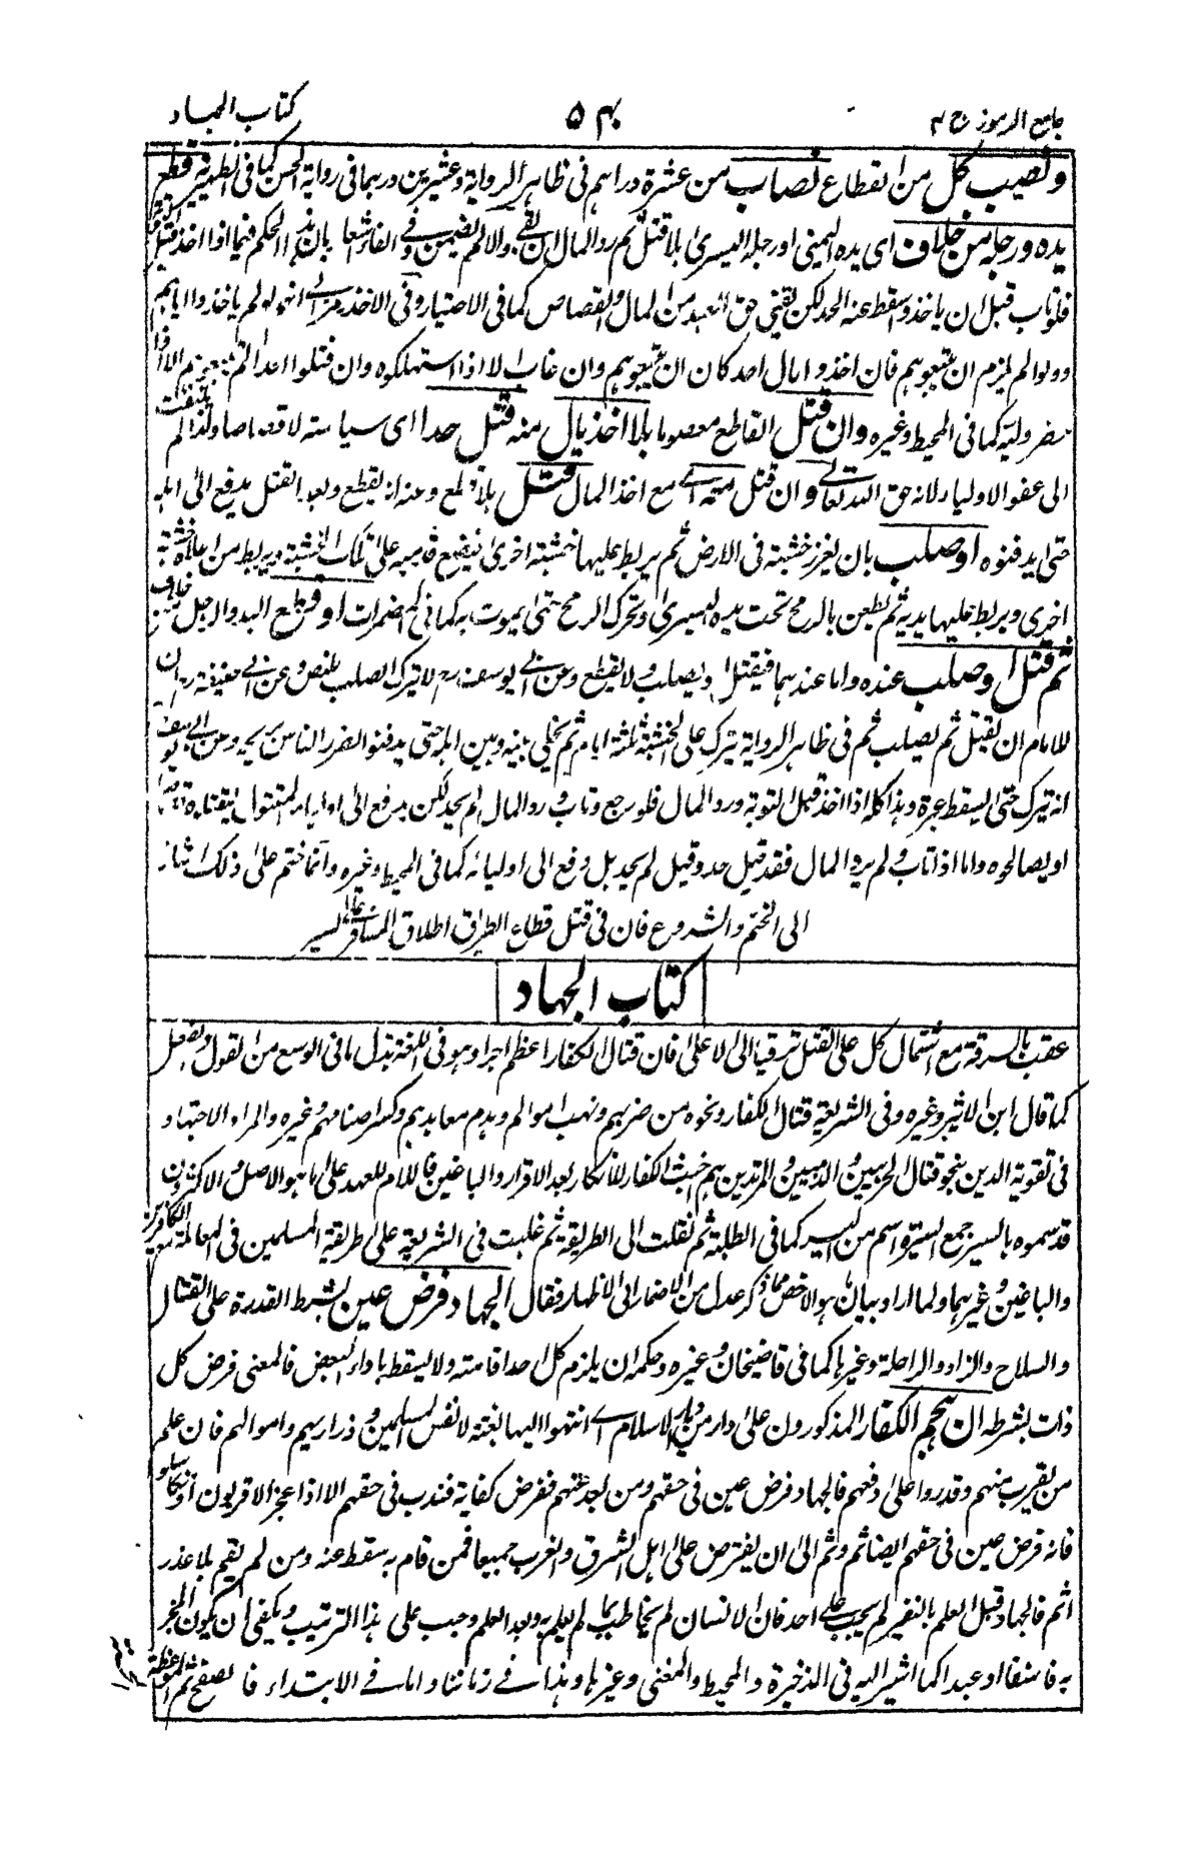 جامع الرموز ج ۴
۵۴۰
كتاب الجهاد
ونصيب كل من القطاع نصاب من عشرة دراهم فى ظاهر الرواية وعشرين درهما فى رواية الحسن كما فى الظهيرية قطع
يده ورجله من خلاف اى يده اليمنى او رجله اليسرى بلا قتل ثم رد المال ان بقى والا لم يضمن وفى الفاء اشعار بان هذا الحكم فيما اذا اخذ قبل
فلو تاب قبل ان ياخذوا سقط عنه الحد لكن بقى حق العبد من المال والقصاص كما فى الاختيار وفى الاخذ انهم لو لم ياخذوا اياهم
وولوا لم يلزم ان يتبعوهم فان اخذوا مال احد كان ان يتبعوهم وان غاب الا اذا استهلكوه وان قتلوا احدا لم يتبعوهم الا اذا
وليه كما فى المحيط وغيره وان قتل القاطع معصوما بلا اخذ مال منه قتل حدا اى سياسة لا قصاصا ولذا لم
الى عفو الاولياء لانه حق الله تعالى وان قتل مع اخذ المال قتل بلا قطع وعنه انه يقطع وبعد القتل يدفع الى اهله
حتى يدفنوه او صلب بان يغرز خشبة فى الارض ثم يربط عليها خشبة اخرى فيضع قدميه على تلك الخشبة ويربط من اعلاه خشبة
اخرى ويربط عليها يديه ثم يطعن بالرمح تحت يده اليسرى وتحرك الرمح حتى يموت به كما فى المضمرات او قطع اليد والرجل من خلاف
ثم قتل او صلب عنده واما عندهما فيقتل او يصلب ولا يقطع وعن ابى يوسف رح لا يترك الصلب للنص وعن ابى حنيفة رح ان
للامام ان يقتل ثم يصلب ثم فى ظاهر الرواية يترك على الخشبة ثلثة ايام ثم يخلى بينه وبين اهله حتى يدفنوا لتضرر الناس بريحه وعن ابى يوسف
انه يترك حتى يسقط عبرة وهذا كله اذا اخذ قبل التوبة ورد المال فلو رجع وتاب ورد المال لم يحد لكن يدفع الى اولياء المقتول
او يصالحوه واما اذا تاب ولم يرد المال فقد قيل حد وقيل لم يحد بل دفع الى اوليائه كما فى المحيط وغيره وانما ختم على ذلك اشارة
الى الختم والشروع فان فى قتل قطاع الطريق اطلاق المسافر
كتاب الجهاد
عقب بالسرقة مع اشتمال كل على القتل ترقيا الى الاعلى فان قتال الكفار اعظم اجرا وهو فى اللغة بذل ما فى الوسع من القول والفعل
كما قال ابن الاثير وغيره وفى الشريعة قتال الكفار ونحوه من ضربهم ونهب اموالهم وهدم معابدهم وكسر اصنامهم وغيره والمراد الاجتهاد
فى تقوية الدين بنحو قتال الحربيين والذميين والمرتدين هم اخبث الكفار للانكار بعد الاقرار والباغين فاللام للعهد على ما هو الاصل والاكثرون
قد سموه بالسير جمع السيرة اسم من السير كما فى الطلبة ثم نقلت الى الطريقة ثم غلبت فى الشريعة على طريقة المسلمين فى المعاملة مع الكافرين
والباغين وغيرهما ولما اراد بيان ما هو الاخص مما ذكر عدل من الاضمار الى الاظهار فقال الجهاد فرض عين بشرط القدرة على القتال
والسلاح والزاد والراحلة وغيرها كما فى قاضيخان وغيره وحكمه ان يلزم كل احد اقامته ولا يسقط باداء البعض فالمعنى فرض كل
ذات بشرطه ان هجم الكفار المذكورون على دار من ديار الاسلام اى انتهوا اليها بغتة لانفس المسلمين وذراريهم واموالهم فان علم
من يقرب منهم وقدروا على دفعهم فالجهاد فرض عين فى حقهم ومن بعد عنهم ففرض كفاية فندب فى حقهم الا اذا عجز الاقربون او تكاسلوا
فانه فرض عين فى حقهم ايضا ثم وثم الى ان يفترض على اهل الشرق والغرب جميعا فمن قام به سقط عنه ومن لم يقم بلا عذر
اثم فالجهاد قبل العلم بالنفير لم يجب على احد فان الانسان لم يخاطب بما لم يعلم وبعد العلم وجب على هذا الترتيب ويكفى ان يكون المخبر
به فاسقا او عبدا كما اشير اليه فى الذخيرة والمحيط والمغنى وغيرها وهذا فى زماننا واما فى الابتداء فالصفح ثم الموعظة